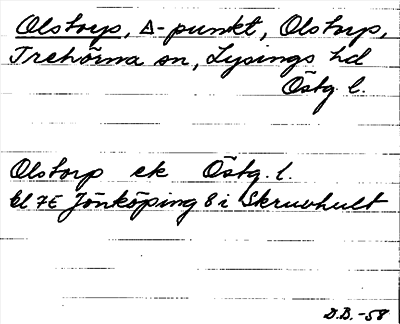 Olstorp, Δ-punkt, Olstorp,
Trehörna sn, Lysings hd
Östg. l.
Olstorp ek Östg. l.
bl 7E Jönköping 8 i Skruvhult
D.B. -58